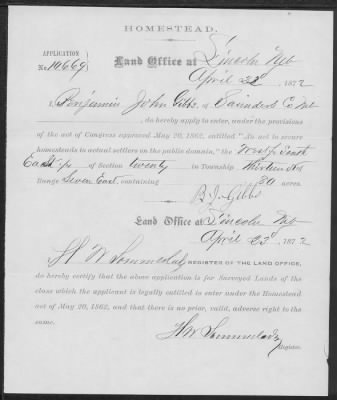 HOMESTEAD.
APPLICATION
No. 10669
Land Office at Lincoln Neb
April 23d 1872
I, Benjamin John Gibbs, of Saunders Co Neb
, do hereby apply to enter, under the provisions
of the act of Congress approved May 20, 1862, entitled "An act to secure
homesteads to actual settlers on the public domain," the West ½ South
East ¼ of Section twenty in Township Thirteen N of
Range Seven East, containing 80 acres.
B. J. Gibbs
Land Office at Lincoln Neb
April 23d 1872
I, REGISTER OF THE LAND OFFICE,
do hereby certify that the above application is for Surveyed Lands of the
class which the applicant is legally entitled to enter under the Homestead
act of May 20, 1862, and that there is no prior, valid, adverse right to the
same.
Register.